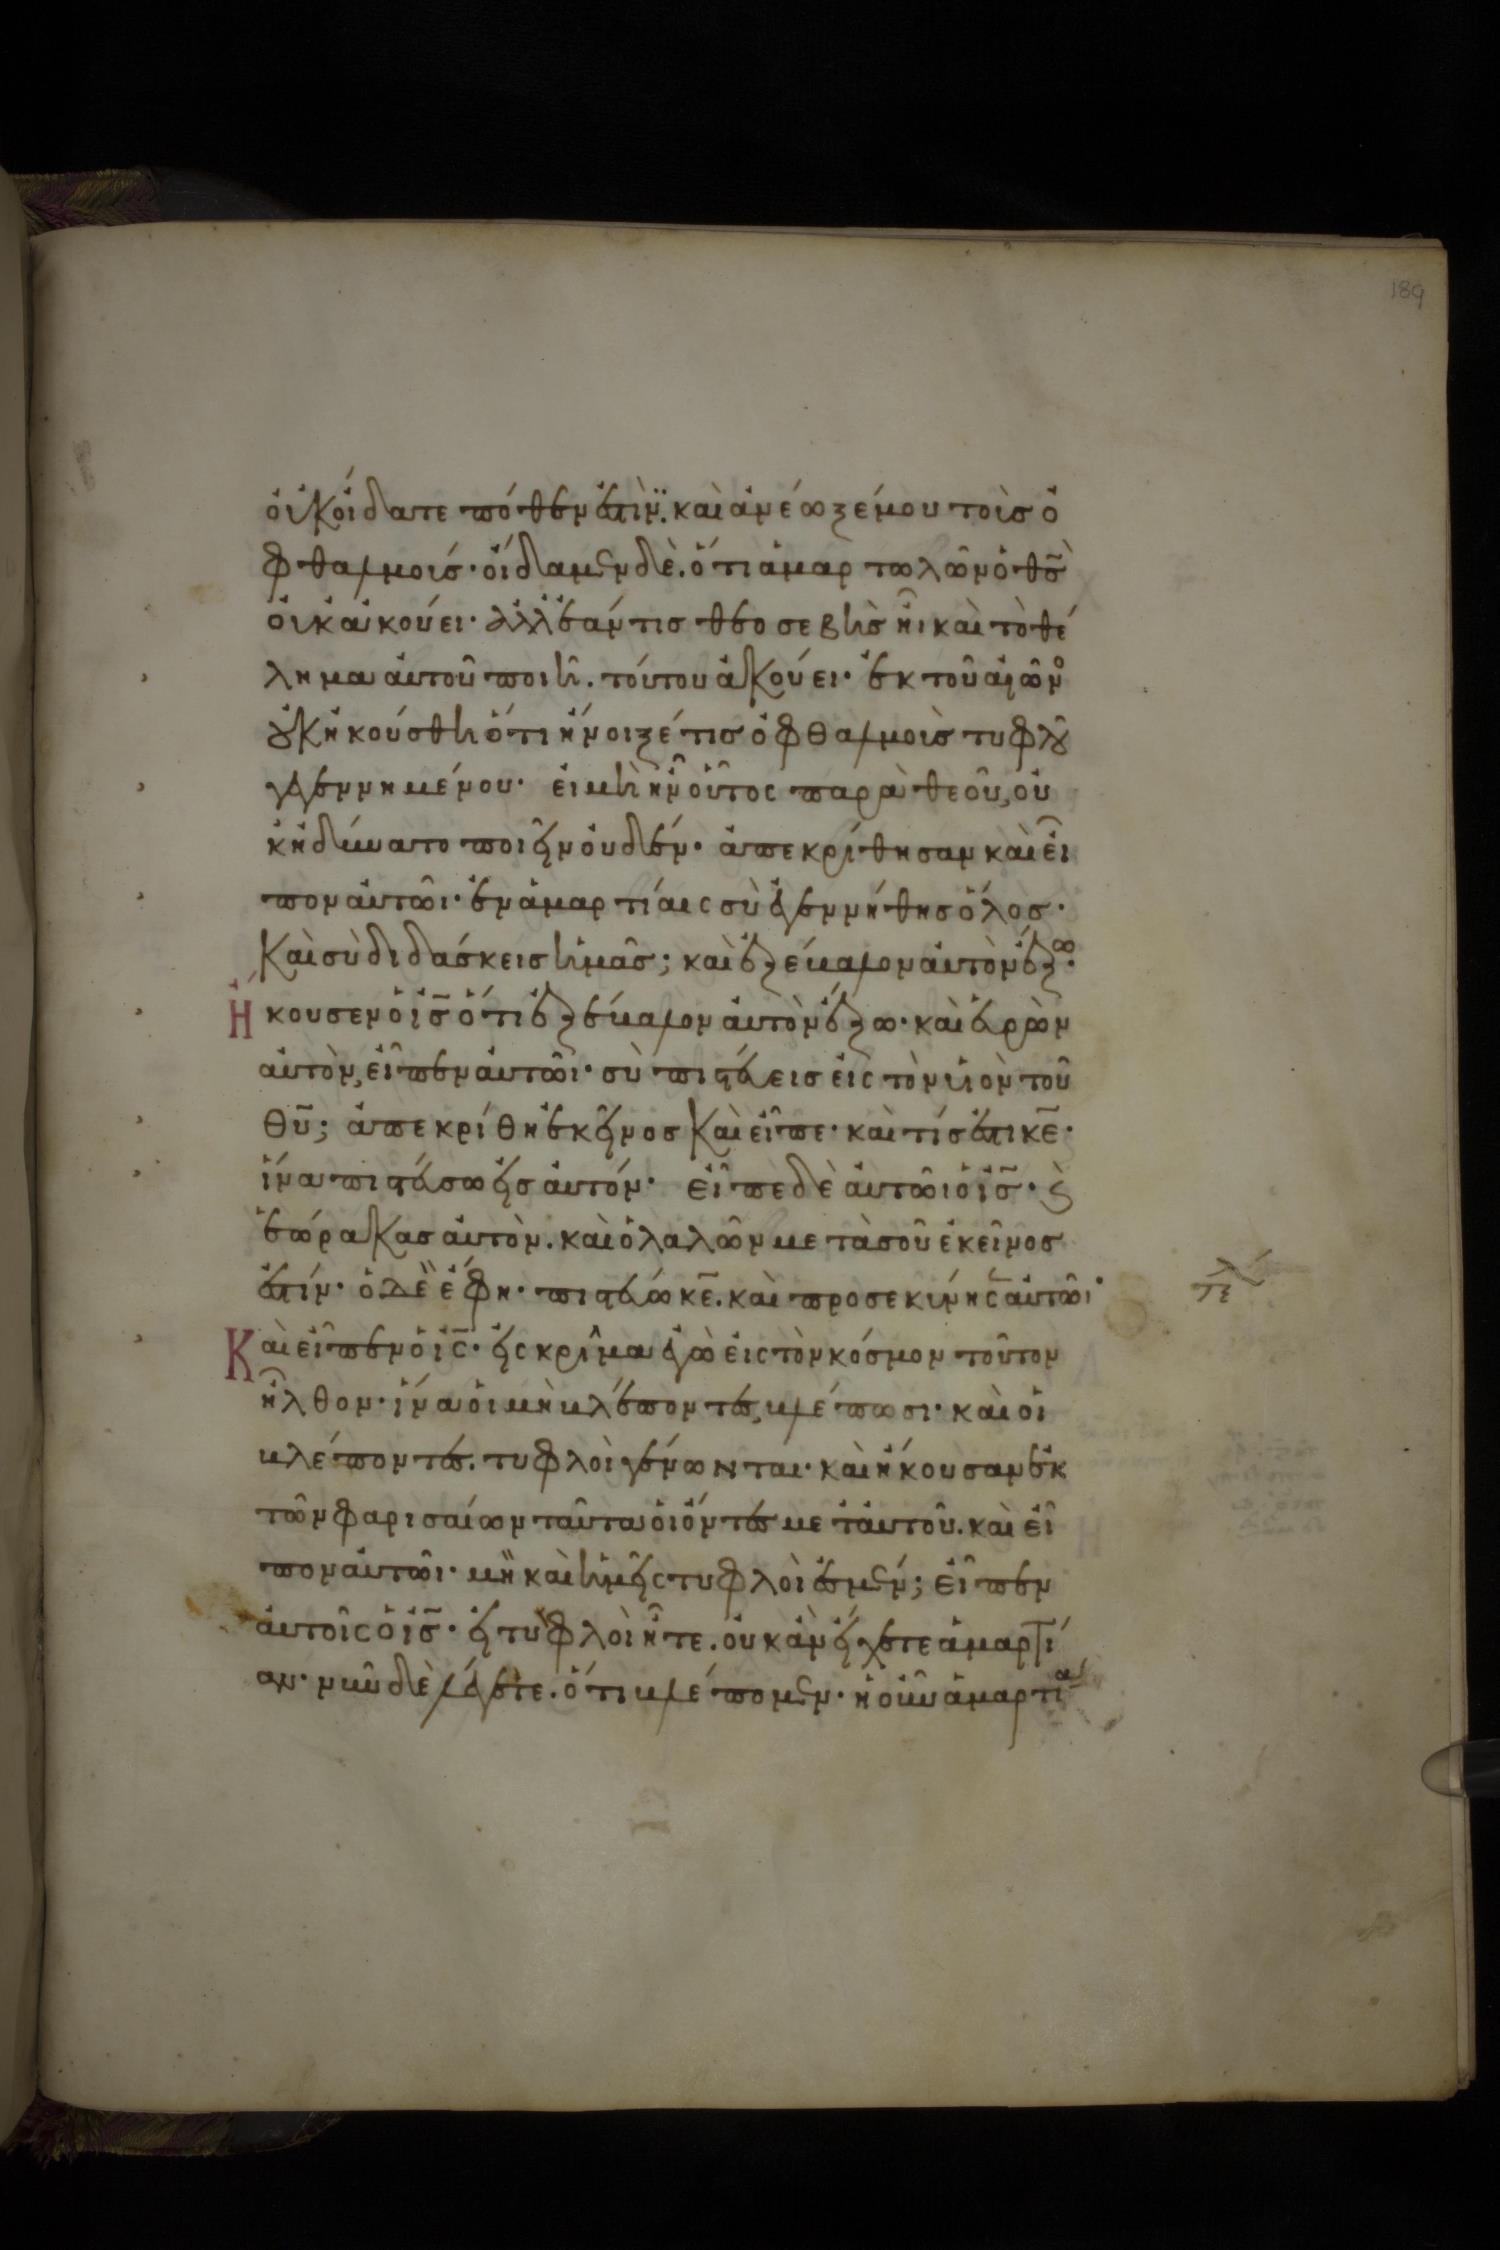 189
οὐκ οἴδατε πόθεν ἐστὶν. καὶ ἀνέωξέ μου τοὺσ ὀ
φθαλμούσ· οἴδαμεν δὲ. ὅτι ἁμαρτωλῶν ὁ θσ̄
οὐκ ἀκούει· ἀλλ' ἐάν τισ θεοσεβὴσ ἦι καὶ τὸ θέ
λημα αὐτοῦ ποιῆ. τούτου ἀκούει· ἐκ τοῦ αἰῶνο
οὐκ ἠκούσθη ὅτι ἤνοιξέ τισ ὀφθαλμοὺσ τυφλοῦ
γεγεννημένου· εἰ μὴ ἦν οὗτος παρὰ θεοῦ, οὐ
κ ἠδύνατο ποιεῖν οὐδέν· ἀπεκρίθησαν καὶ εἶ
πον αὐτῶι· ἐν ἁμαρτίαις σὺ ἐγεννήθησ ὅλοσ·
καὶ σὺ διδάσκεισ ἡμᾶσ; καὶ ἐξέβαλον αὐτὸν ἔξω·
Ἤκουσεν ὁ ἰσ̄ ὅτι ἐξέβαλον αὐτὸν ἔξω· καὶ εὑρὼν
αὐτὸν, εἶπεν αὐτῶι· σὺ πιστεύεισ εἰς τὸν υἱὸν τοῦ
θῡ; ἀπεκρίθη ἐκεῖνοσ καὶ εἶπε· καὶ τίσ ἐστι κε̄·
ἵνα πιστεύσω εἰσ αὐτόν· εἶπε δὲ αὐτῶι ὁ ἰσ̄· ϗ
ἑώρακασ αὐτὸν. καὶ ὁ λαλῶν μετὰ σοῦ ἐκεῖνοσ
ἐστίν· ὁ δὲ ἔφη· πιστεύω κε̄. καὶ προσεκύνησεν αὐτῶι·
τελ
Καὶ εἶπεν ὁ ις̄· εἰς κρῖμα ἐγὼ εἰς τὸν κόσμον τοῦτον
ἦλθον· ἵνα οἱ μὴ βλέποντεσ, βλέπωσι· καὶ οἱ
βλέποντεσ. τυφλοὶ γένωνται· καὶ ἤκουσαν ἐκ
τῶν φαρισαίων ταῦτα οἱ ὄντεσ μετ' αὐτοῦ. καὶ εἶ
πον αὐτῶι· μὴ καὶ ἡμεῖς τυφλοὶ ἐσμεν; εἶπεν
αὐτοῖς ὁ ἰσ̄· εἰ τυφλοὶ ἦτε. οὐκ ἂν εἴχετε ἁμαρτί
αν· νῦν δὲ λέγετε. ὅτι βλέπομεν· ἡ οὖν ἁμαρτία